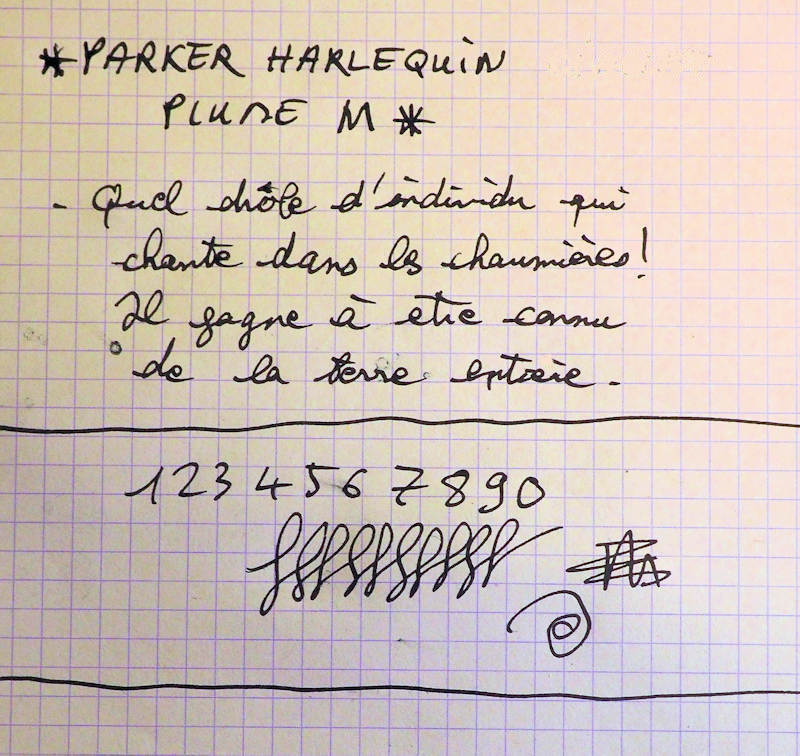 *PARKER HARLEQUIN
PLUME M*
- Quel drôle d'individu qui
chante dans les chaumières!
Il gagne à etre connu
de la terre entière.
1 2 3 4 5 6 7 8 9 0